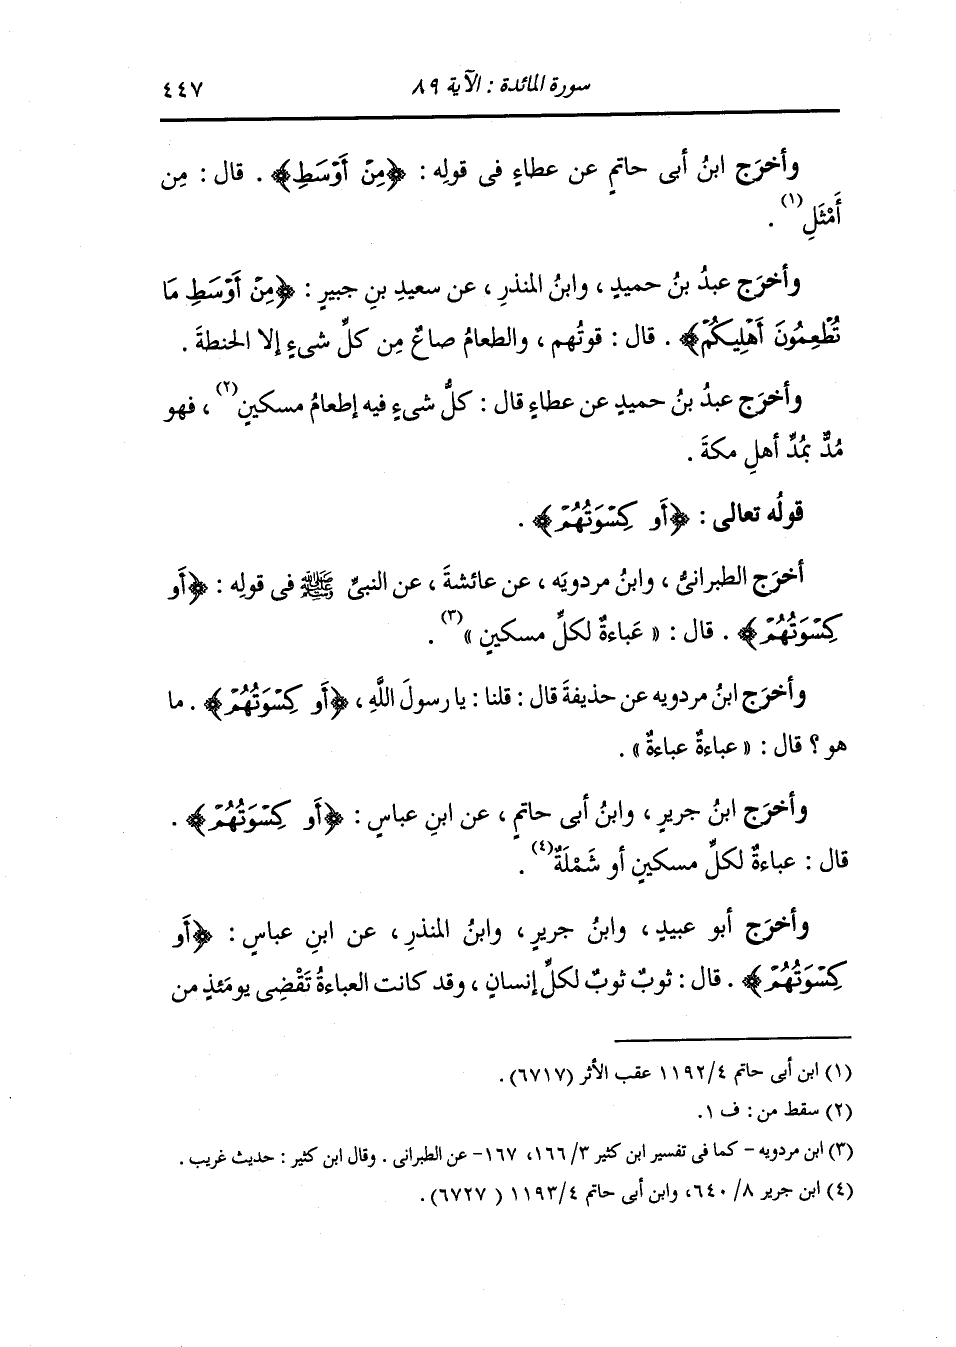 سورة المائدة : الآية ٨٩ ٤٤٧
وأخرَج ابنُ أبى حاتمٍ عن عطاءٍ فى قولِه : ﴿مِنْ أَوْسَطِ﴾ . قال : مِن
أَمْثَلِ(١) .
وأخرَج عبدُ بنُ حميدٍ ، وابنُ المنذرِ ، عن سعيدِ بنِ جبيرٍ : ﴿مِنْ أَوْسَطِ مَا
تُطْعِمُونَ أَهْلِيكُمْ﴾ . قال : قوتُهم ، والطعامُ صاعٌ مِن كلِّ شىءٍ إلا الحنطةَ .
وأخرَج عبدُ بنُ حميدٍ عن عطاءٍ قال : كلُّ شىءٍ فيه إطعامُ مسكينٍ(٢) ، فهو
مُدٌّ بمُدِّ أهلِ مكةَ .
قولُه تعالى : ﴿أَوْ كِسْوَتُهُمْ﴾ .
أخرَج الطبرانىُّ ، وابنُ مردويَه ، عن عائشةَ ، عن النبىِّ ﷺ فى قولِه : ﴿أَوْ
كِسْوَتُهُمْ﴾ . قال : « عَباءةٌ لكلِّ مسكينٍ »(٣) .
وأخرَج ابنُ مردويه عن حذيفةَ قال : قلنا : يا رسولَ اللَّهِ ، ﴿أَوْ كِسْوَتُهُمْ﴾ . ما
هو ؟ قال : « عباءةٌ عباءةٌ » .
وأخرَج ابنُ جريرٍ ، وابنُ أبى حاتمٍ ، عن ابنِ عباسٍ : ﴿أَوْ كِسْوَتُهُمْ﴾ .
قال : عباءةٌ لكلِّ مسكينٍ أو شَمْلَةٌ(٤) .
وأخرَج أبو عبيدٍ ، وابنُ جريرٍ ، وابنُ المنذرِ ، عن ابنِ عباسٍ : ﴿أَوْ
كِسْوَتُهُمْ﴾ . قال : ثوبٌ ثوبٌ لكلِّ إنسانٍ ، وقد كانت العباءةُ تَقْضِى يومَئذٍ من
(١) ابن أبى حاتم ١١٩٢/٤ عقب الأثر (٦٧١٧) .
(٢) سقط من : ف ١.
(٣) ابن مردويه - كما فى تفسير ابن كثير ١٦٦/٣، ١٦٧- عن الطبرانى . وقال ابن كثير : حديث غريب .
(٤) ابن جرير ٦٤٠/٨، وابن أبى حاتم ١١٩٣/٤ ( ٦٧٢٧) .